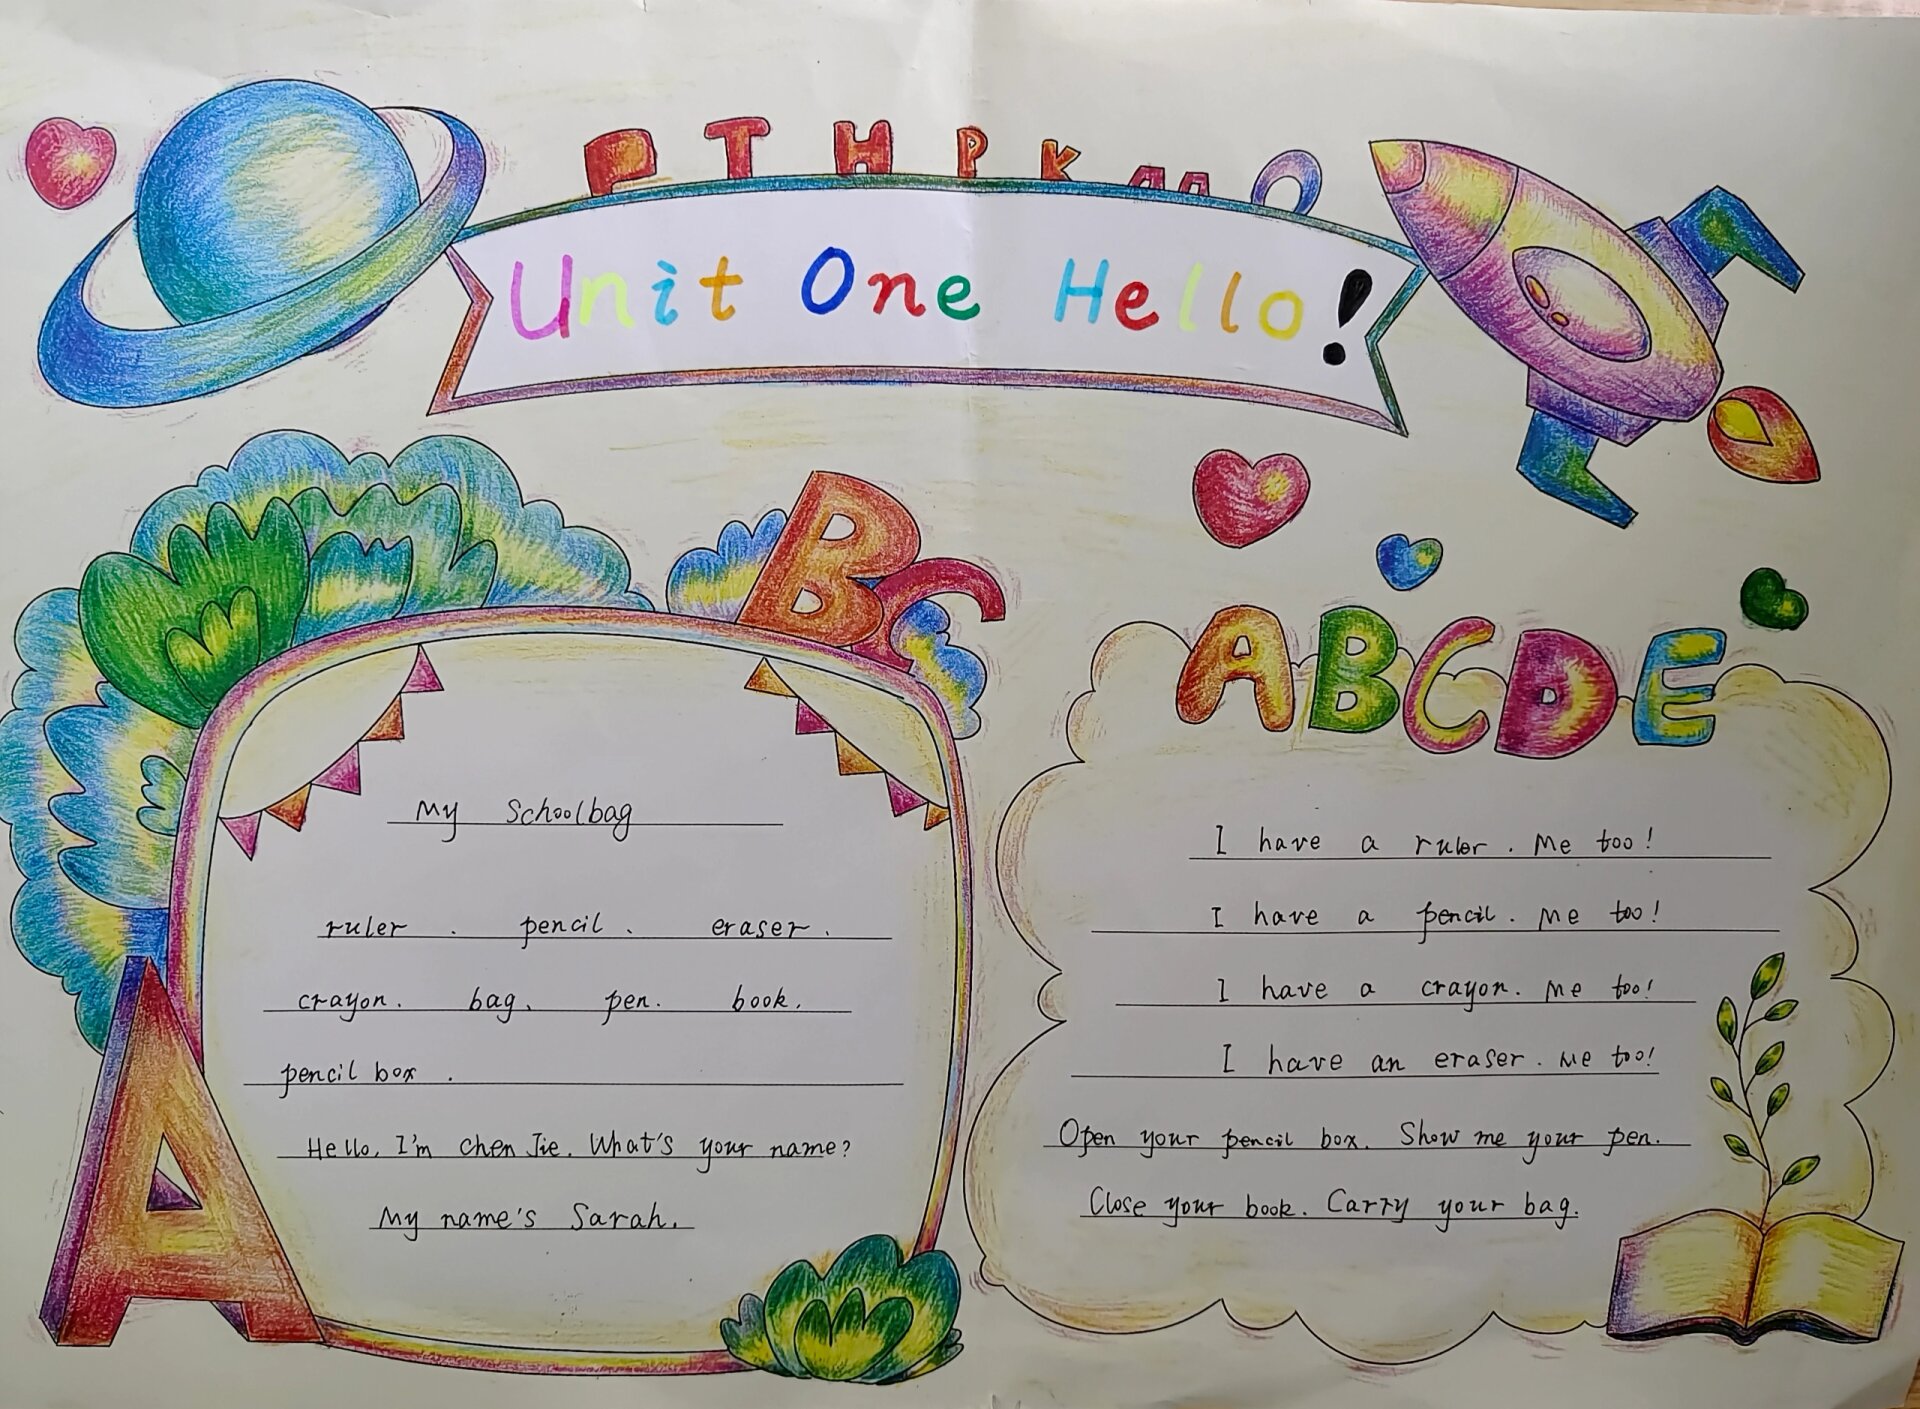 T H P K
Unit One Hello!
BC
ABCDE
My Schoolbag
ruler . pencil . eraser .
crayon. bag. pen. book.
pencil box .
Hello, I'm Chen Jie. What's your name?
My name's Sarah.
A
I have a ruler . Me too!
I have a pencil . Me too!
I have a crayon. Me too!
I have an eraser . Me too!
Open your pencil box. Show me your pen.
Close your book. Carry your bag.